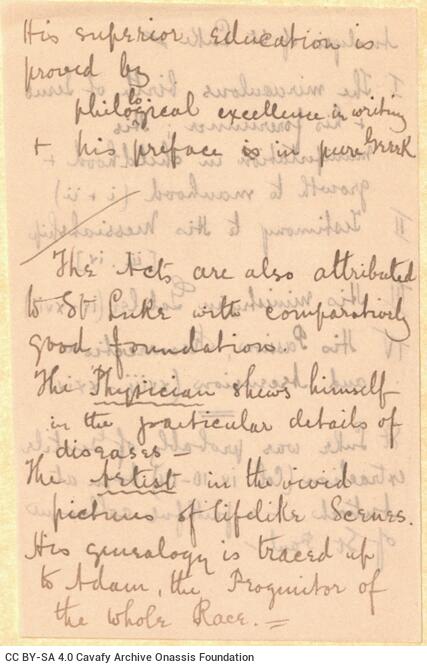 His superior education is
proved by
philological excellence in writing
+ his preface is in pure Greek
The Acts are also attributed
to St Luke with comparatively
good foundation
The Physician shews himself
in the particular details of
diseases —
The Artist in the vivid
pictures of lifelike Scenes.
His genealogy is traced up
to Adam, the Progenitor of
the whole Race. =
CC BY-SA 4.0 Cavafy Archive Onassis Foundation